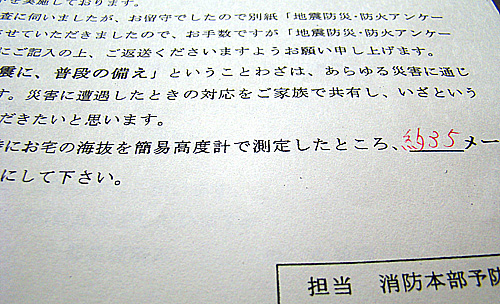 せ実施しております。
査に伺いましたが、お留守でしたので別紙「地震防災・防火アンケー
させていただきましたので、お手数ですが「地震防災・防火アンケー
にご記入の上、ご返送くださいますようお願い申し上げます。
震に、普段の備え」ということわざは、あらゆる災害に通じ
す。災害に遭遇したときの対応をご家族で共有し、いざという
だきたいと思います。
にお宅の海抜を簡易高度計で測定したところ、約35メー
にして下さい。
担当 消防本部予防